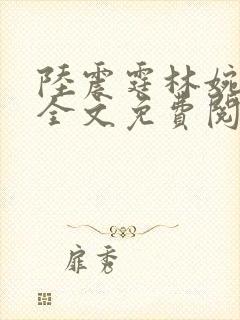 陸震霆林婉
全文免費閱
扉秀